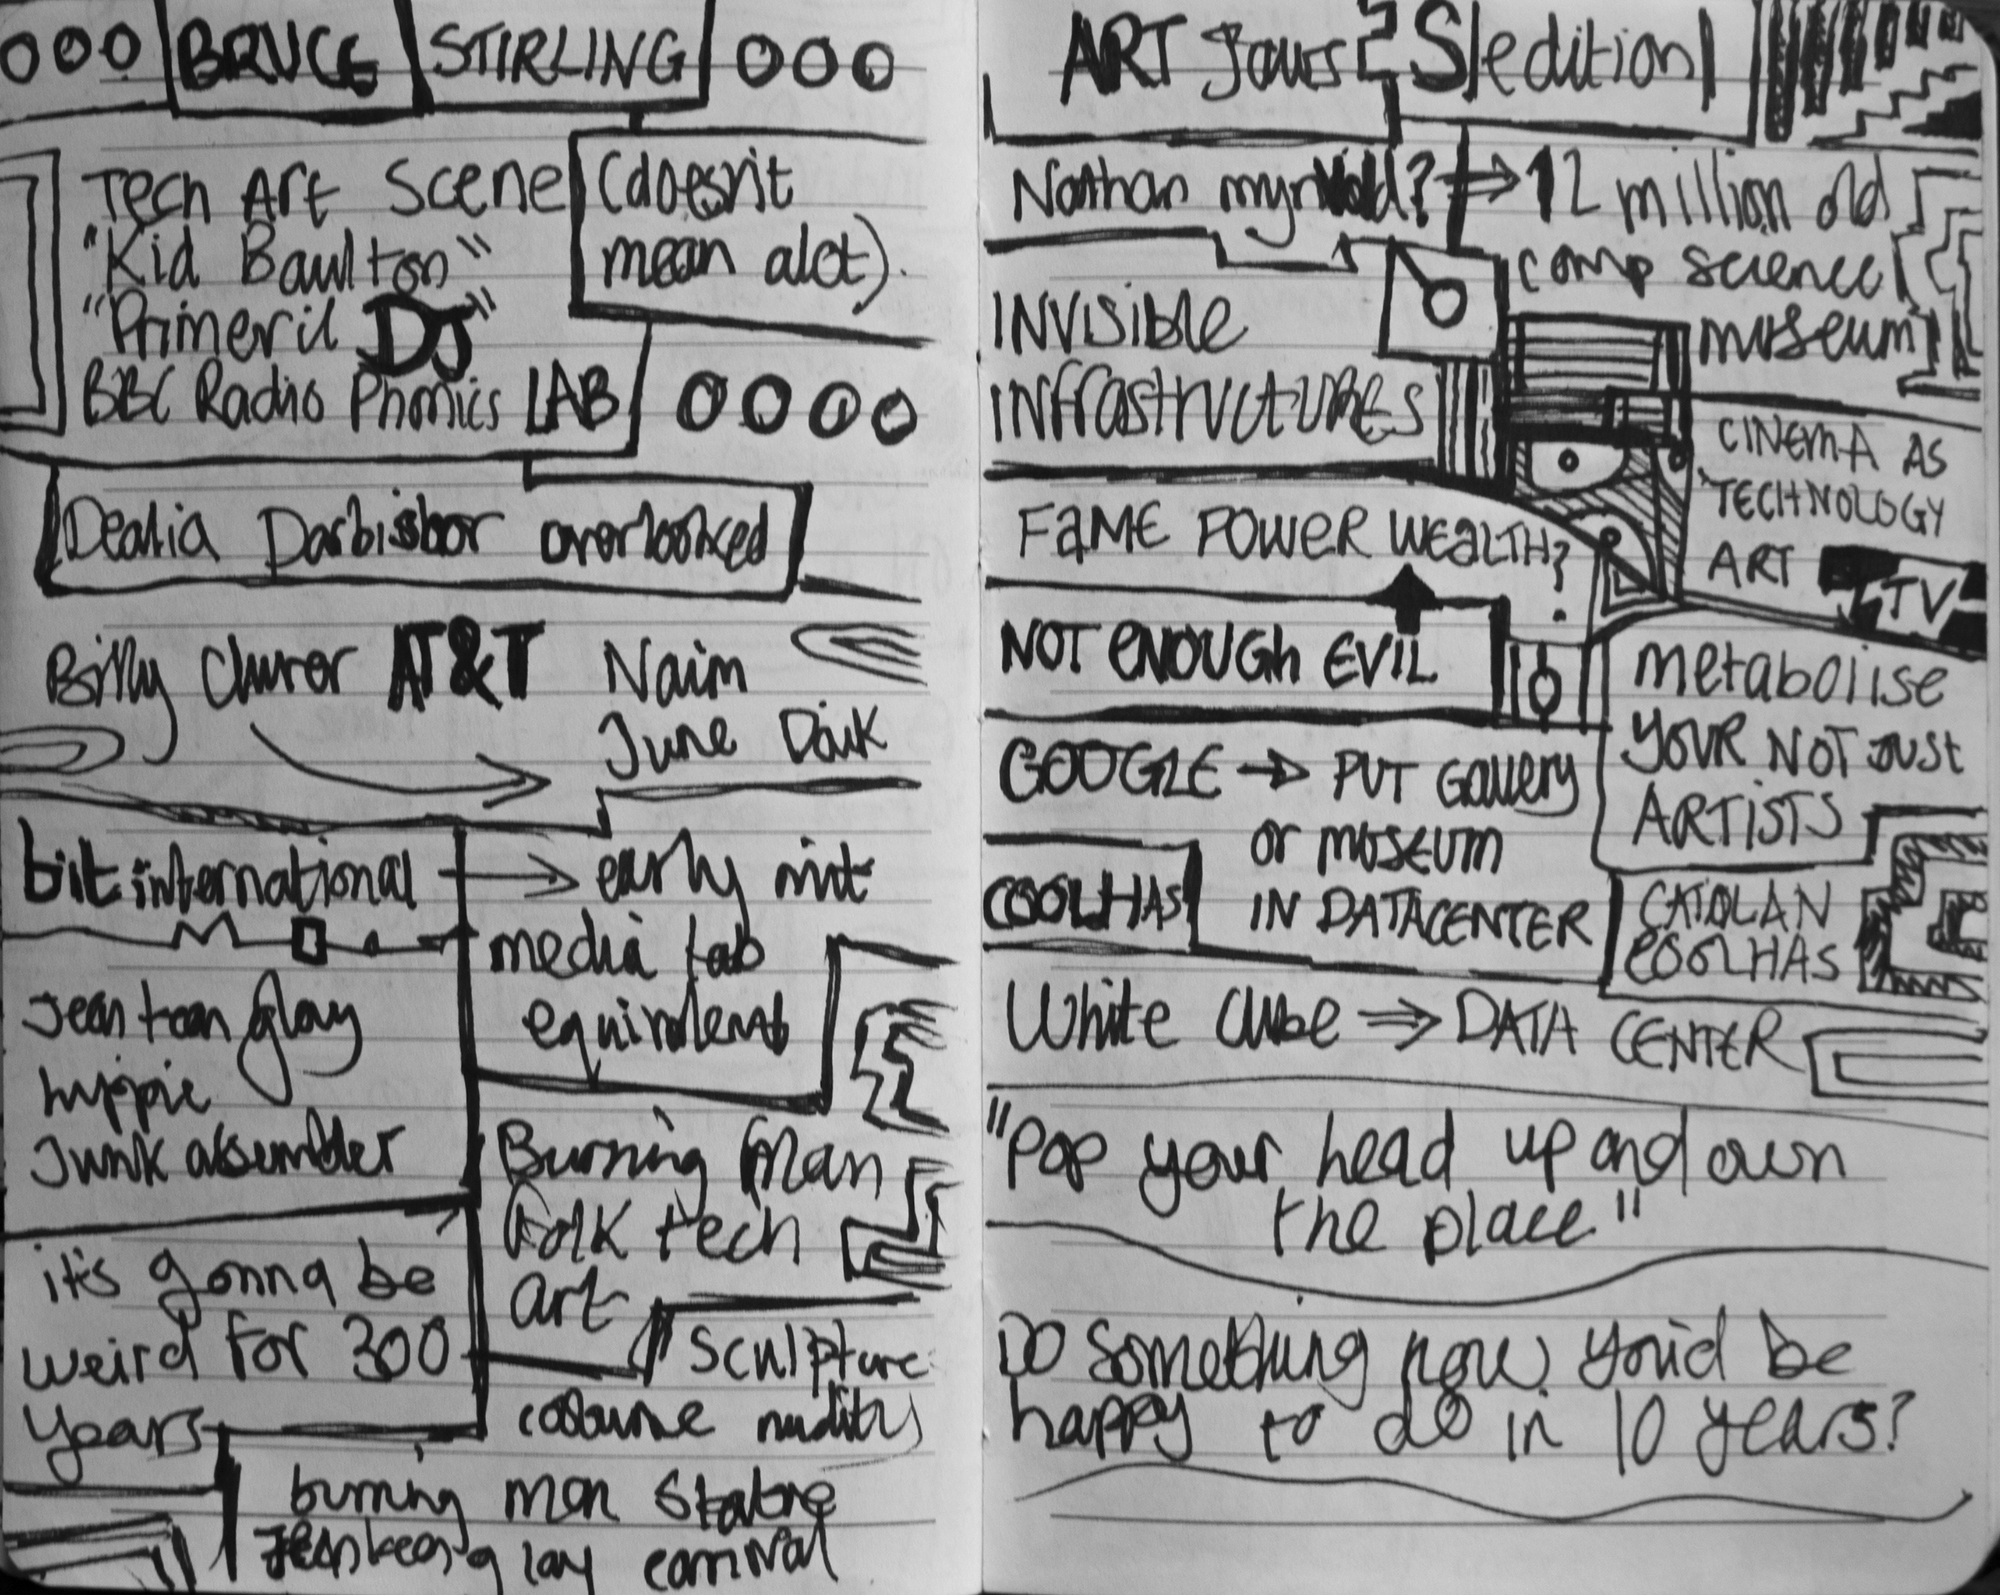 BRUCE STIRLING
Tech Art Scene
(doesn't
mean alot).
"Kid Baulton"
"Primeril DJ"
BBC Radio Phonics LAB
Dealia Darbishor overlooked
Billy Cluver AT&T
Naim
June Daik
bit international
early mit
media lab
equivalent
Jean tean glay
hippie
Junk assembler
Burning Man
Folk tech
art
it's gonna be
weird for 300
years
Sculpture
costume nudity
burning man statue
Jean tean g lay carnival
ART Jours? S/edition
Nathan myrvold?
12 million old
comp science
museum
INVISIBLE
INFRASTRUCTURES
CINEMA AS
TECHNOLOGY
ART
TV
FAME POWER WEALTH?
NOT ENOUGH EVIL
metabolise
YOUR NOT JUST
ARTISTS
GOOGLE → PUT GALLERY
OR MUSEUM
IN DATACENTER
COOLHAS
CATOLAN
COOLHAS
White Cube ⇒ DATA CENTER
"Pop your head up and own
the place"
DO Something now you'd be
happy to do in 10 years?